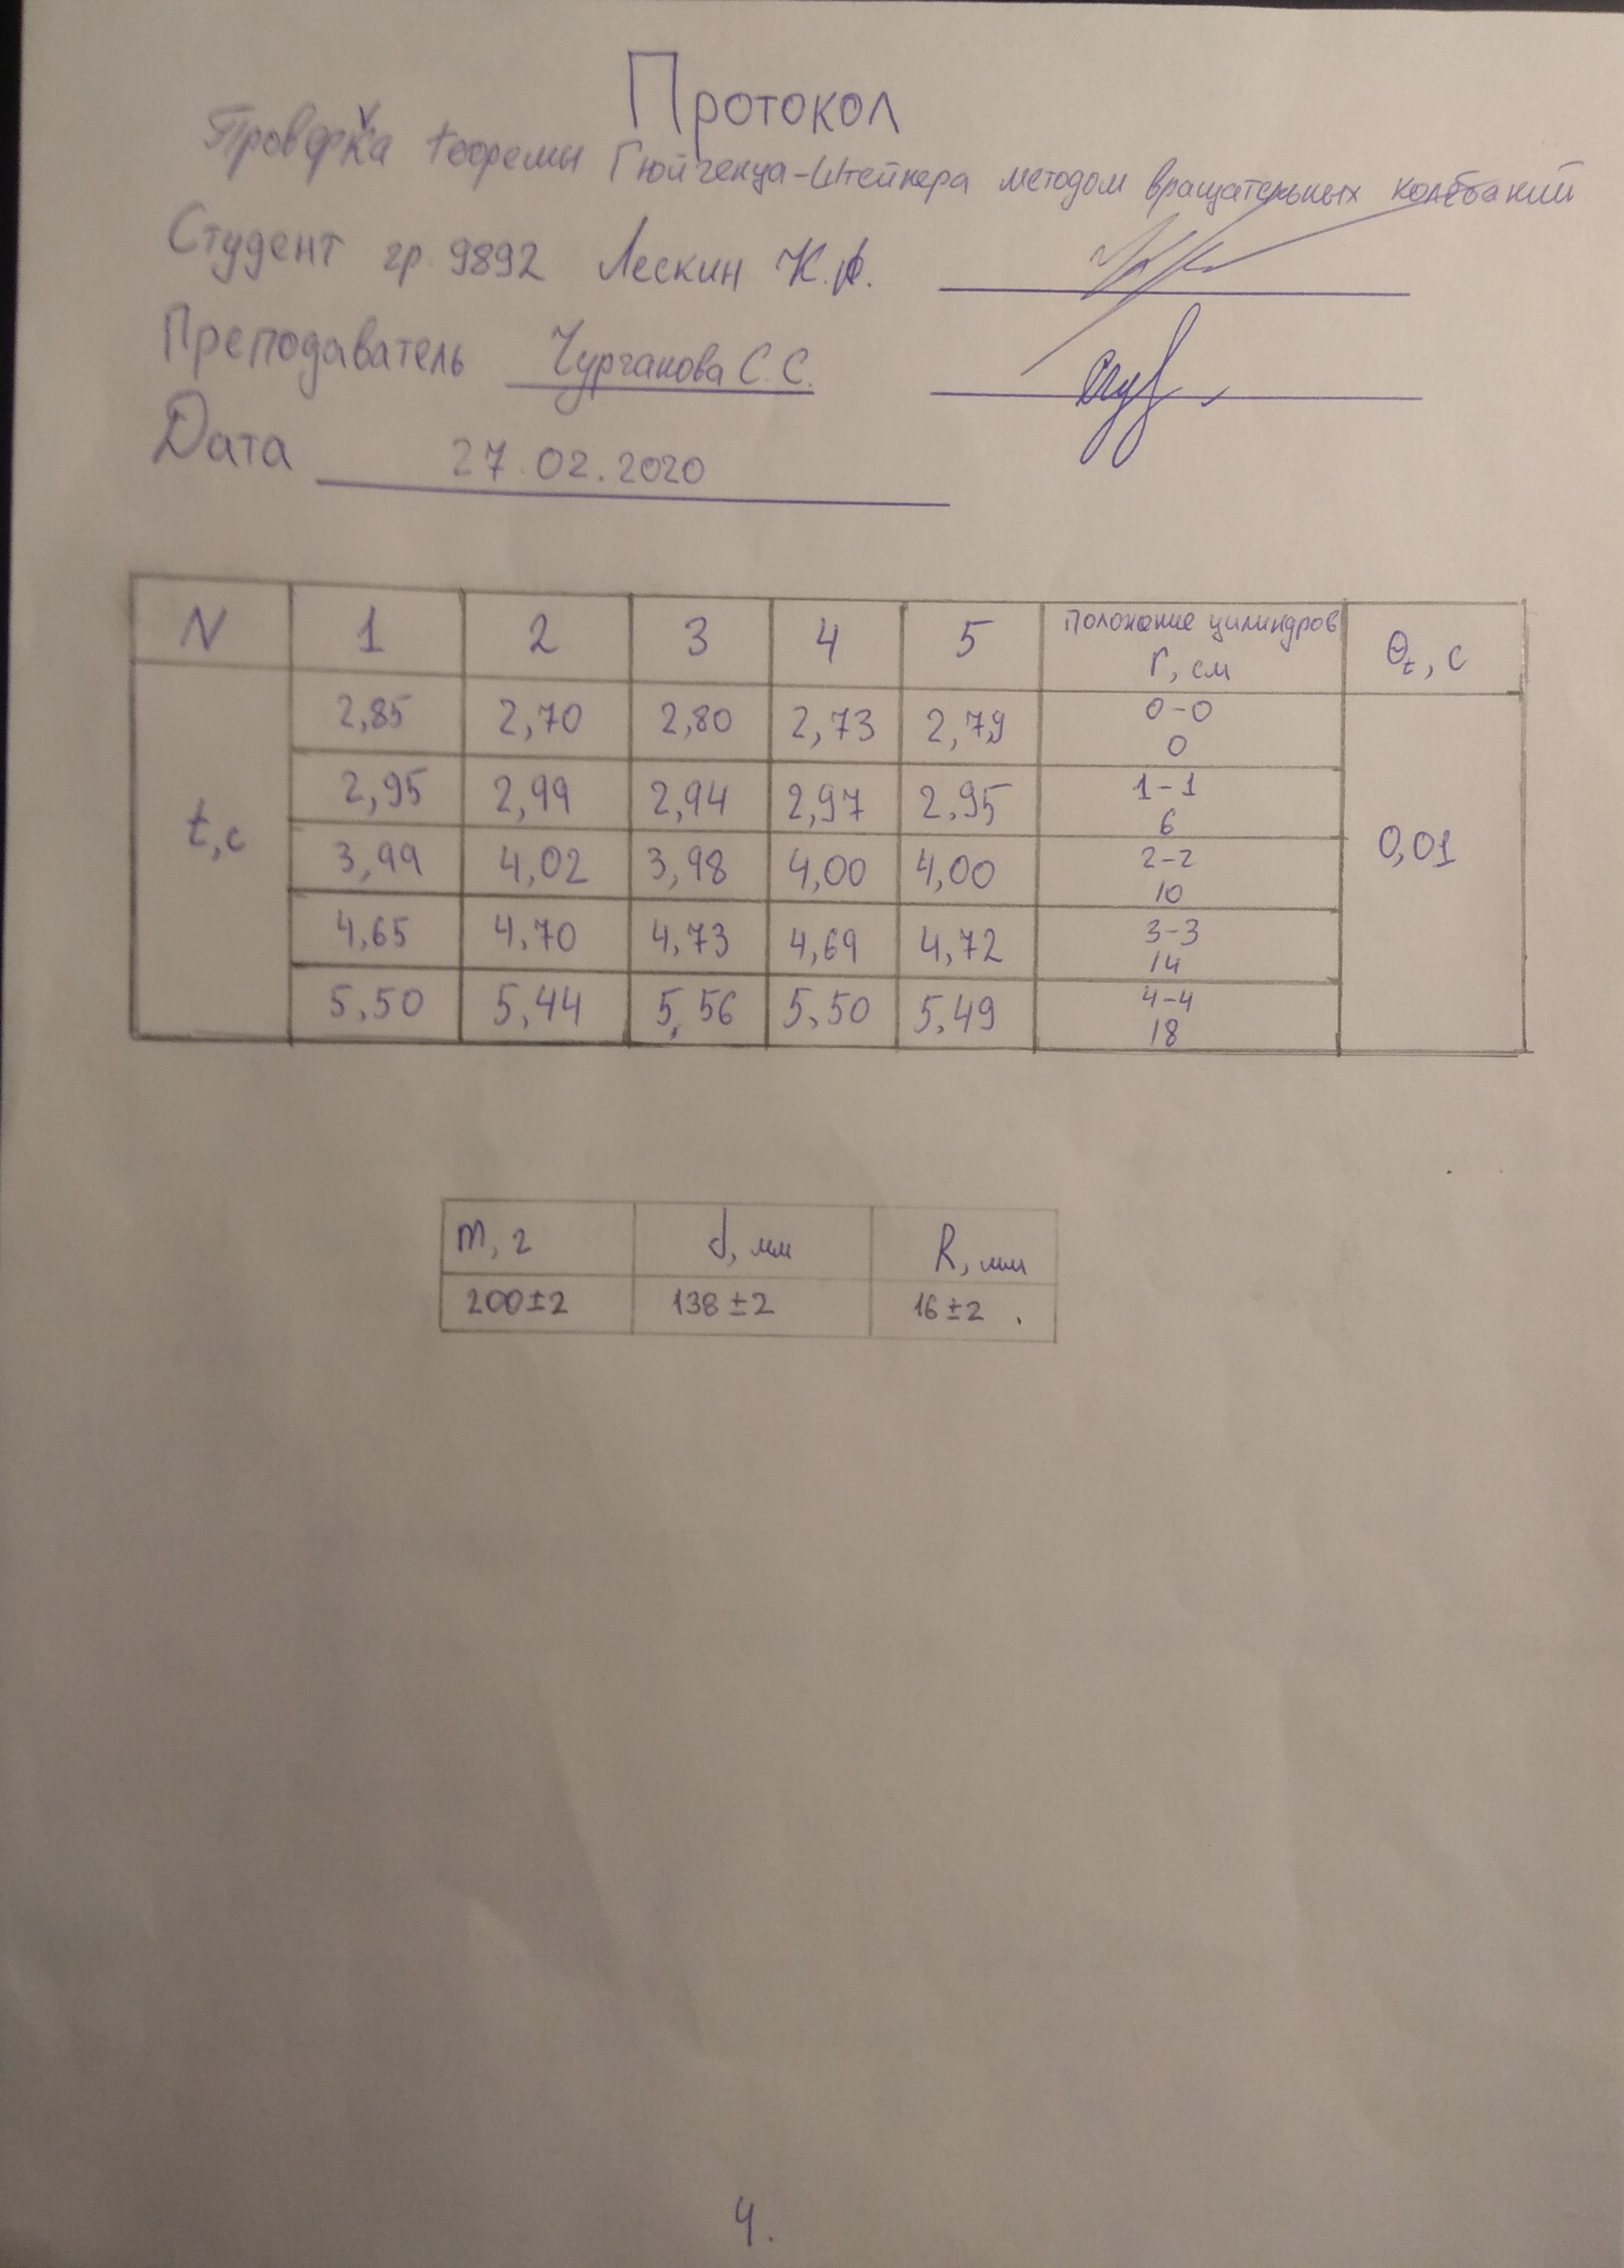 Протокол
Проверка теоремы Гюйгенца-Штейнера методом вращательных колебаний
Студент гр. 9892 Лескин К.А.
Преподаватель Чурганова С.С.
Дата 27.02.2020
N 1 2 3 4 5 Положение цилиндров r, см θt, с
t,с 2,85 2,70 2,80 2,73 2,79 0-0 0 0,01
2,95 2,99 2,94 2,97 2,95 1-1 6
3,99 4,02 3,98 4,00 4,00 2-2 10
4,65 4,70 4,73 4,69 4,72 3-3 14
5,50 5,44 5,56 5,50 5,49 4-4 18
m, г d, мм R, мм
200±2 138±2 16±2
4.